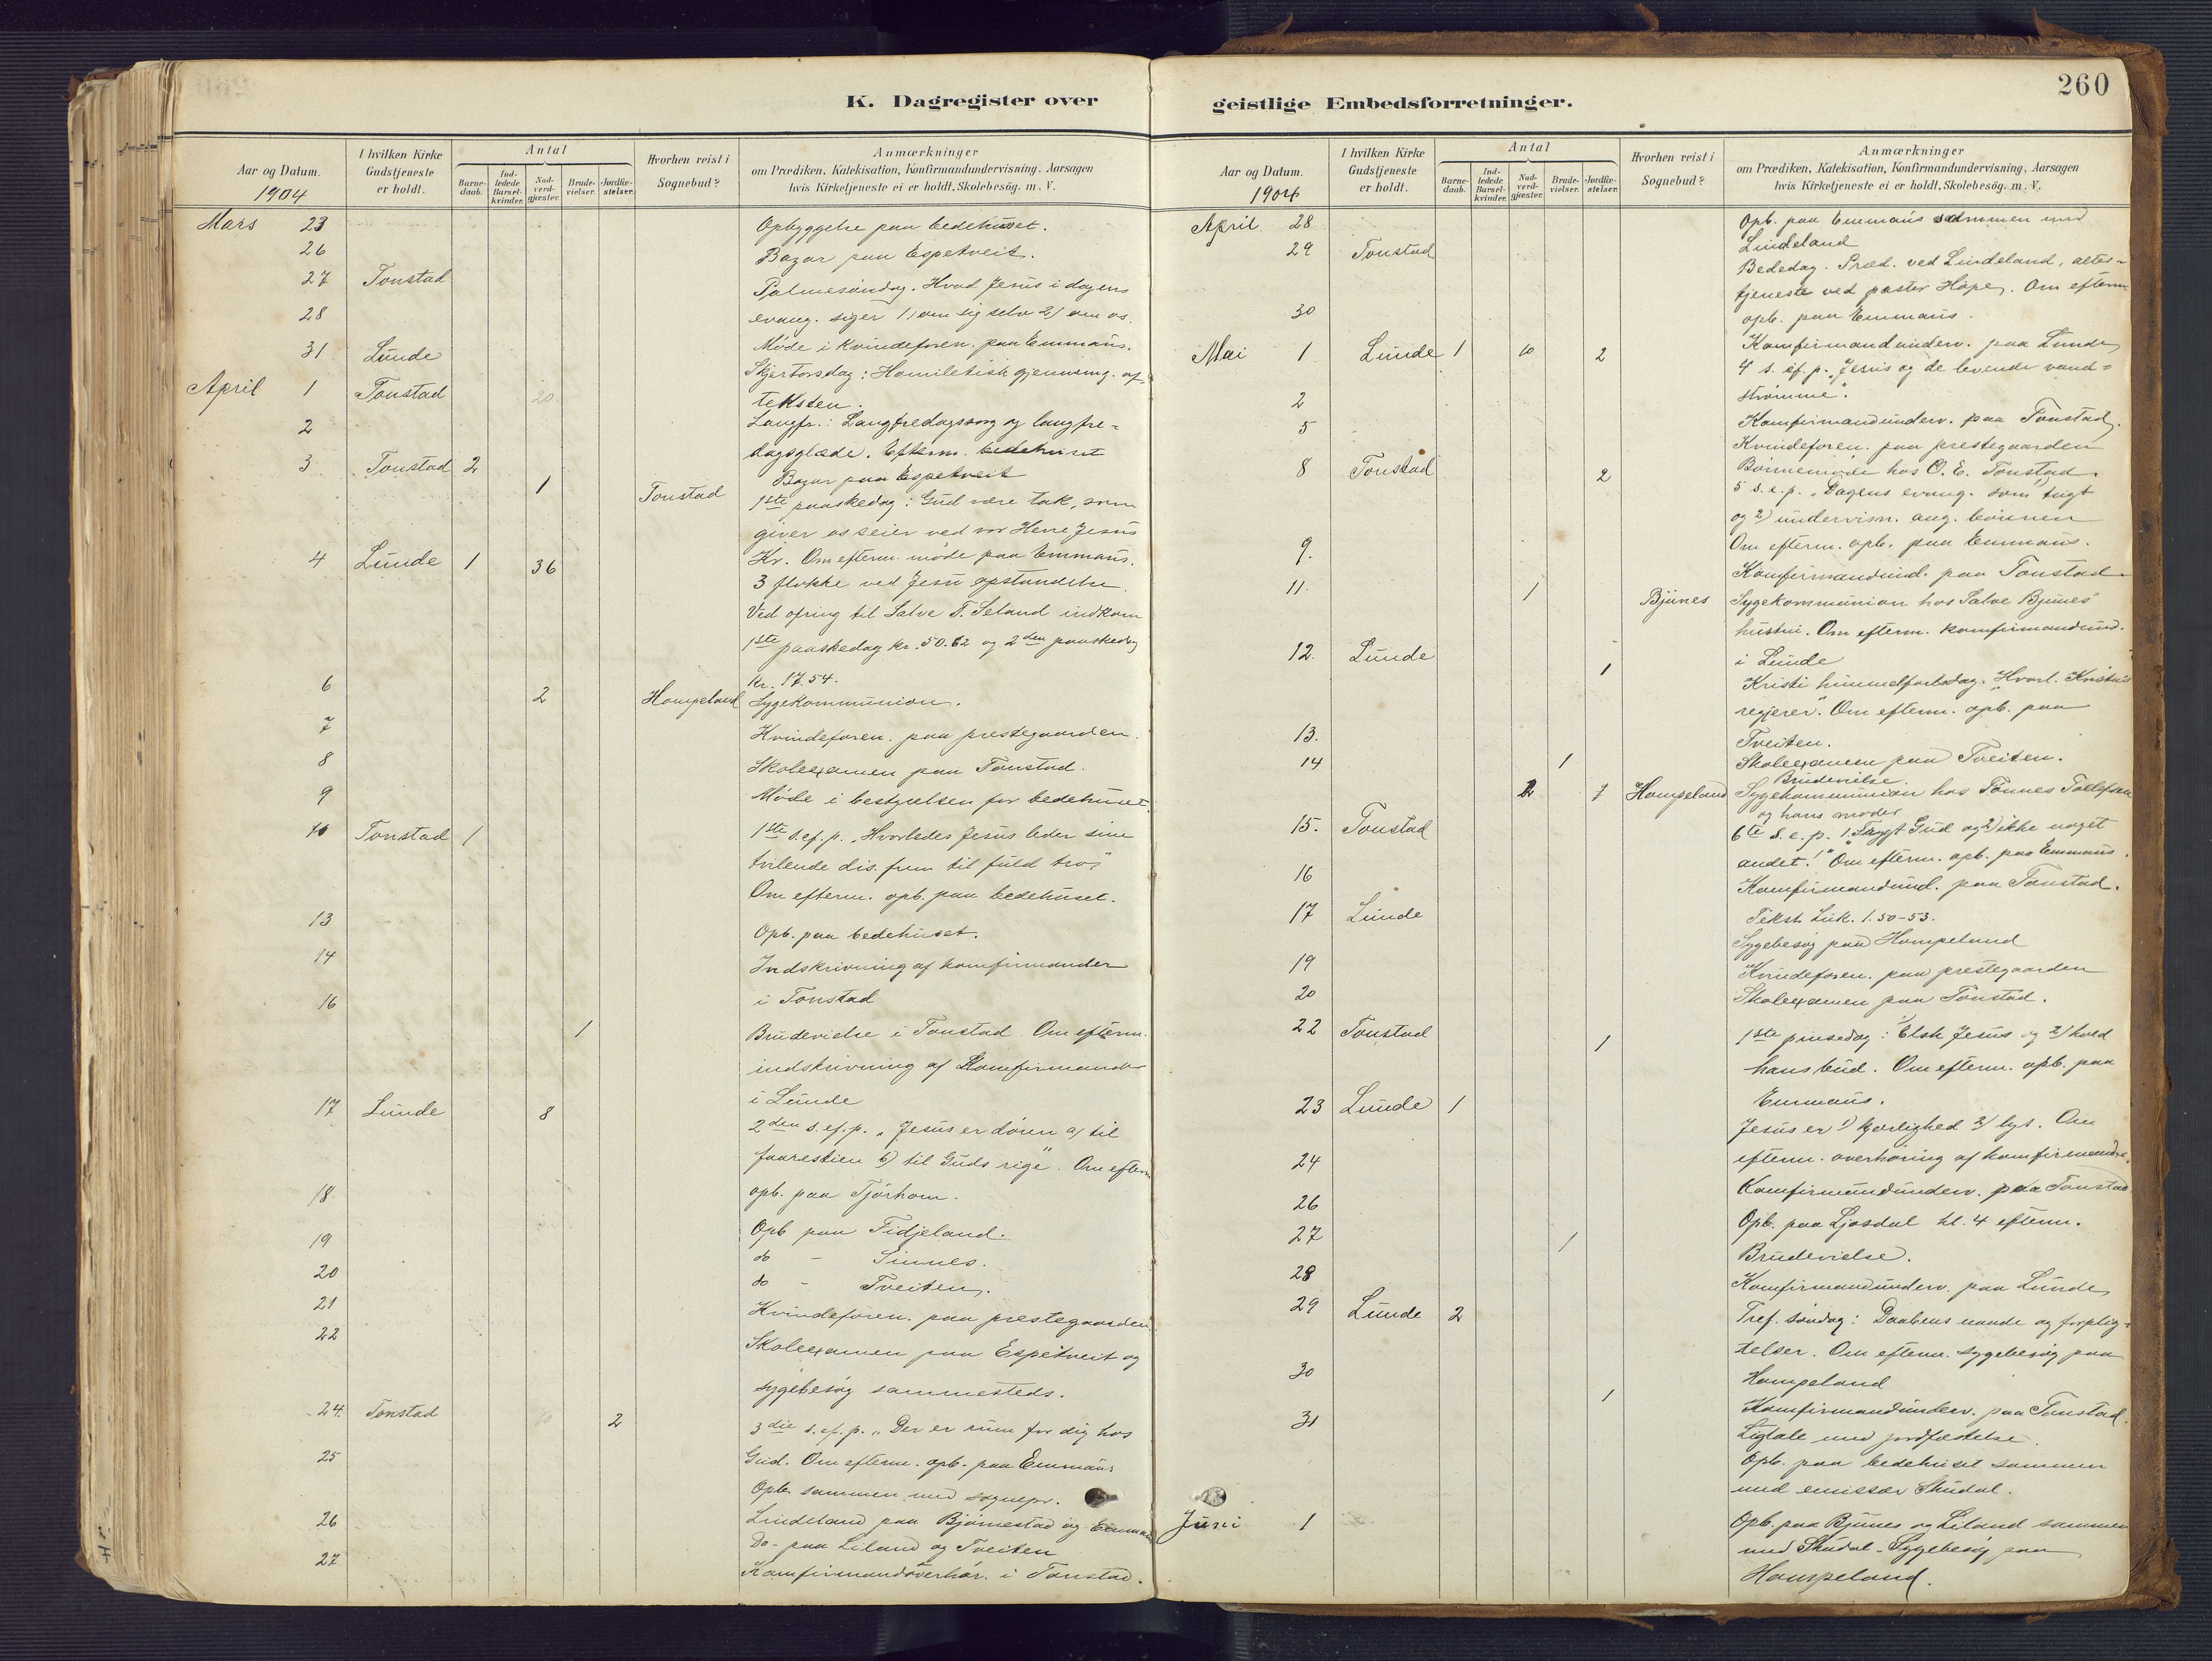 260
K. Dagregister over
Aar og Datum.
1904
I hvilken Kirke
Gudstjeneste
er holdt.
Antal
Barne-
daab.
Ind-
ledede
Barsel-
kvinder.
Nad-
verd-
gjester.
Brude-
vielser.
Jordfæ-
stelser.
Hvorhen reist i
Sognebud?
Anmærkninger
om Prædiken, Katekisation, Konfirmandundervisning, Aarsagen
hvis Kirketjeneste ei er holdt, Skolebesøg. m. V.
Mars 23 Opbyggelse paa bedehuset.
26 Bazar paa Espetveit.
27 Tonstad Palmesøndag. Hvad Jesus i dagens
evang. siger 1) om sig selv 2) om os.
28 Møde i kvindeforen. paa Emmaus.
31 Lunde Skjærtorsdag: Homiletisk gjennemg. af
teksten.
April 1 Tonstad 20 Langfr.: Langfredagssorg og langfre-
dagsglæde. Efterm. bedehuset
2 Bazar paa Espetveit
3 Tonstad 2 1 Tonstad 1ste paaskedag: Gud være tak, som
giver os seier ved vor Herre Jesus
Kr. Om efterm. møde paa Emmaus.
4 Lunde 1 36 3 flokke ved Jesu opstandelse.
Ved ofring til Salve T. Seland indkom
1ste paaskedag kr. 50.62 og 2den paaskedag
Kr. 17.54.
6 2 Hompeland Sygekommunion.
7 Kvindeforen. paa prestegaarden.
8 Skolexamen paa Tonstad.
9 Møde i bestyrelsen for bedehuset.
10 Tonstad 1 1ste s. ef. p. „Hvorledes Jesus leder sine
tvilende dis. frem til fuld tro"
Om efterm. opb. paa bedehuset.
13 Opb. paa bedehuset.
14 Indskrivning af konfirmander
i Tonstad
16 1 Brudevielse i Tonstad. Om efterm.
indskrivning af Konfirmander
i Lunde
17 Lunde 8 2den s. ef. p. „Jesus er døren a) til
faarestien b) til Guds rige". Om efterm
opb. paa Tjørhom.
18 Opb paa Fidjeland.
19 do - Sinnes.
20 do - Tveiten.
21 Kvindeforen. paa prestegaarden.
22 Skolexamen paa Espetveit og
sygebesøg sammesteds.
24. Tonstad 10 2 3die s. ef. p. „Der er rum for dig hos
Gud. Om efterm. opb. paa Emmaus
25 Opb. sammen med sognepr.
Lindeland paa Bjørnestad og Emmaus
26 Do - paa Liland og Tveiten
27 Konfirmandoverhør. i Tonstad.
geistlige Embedsforretninger.
Aar og Datum.
1904
I hvilken Kirke
Gudstjeneste
er holdt.
Antal
Barne-
daab.
Ind-
ledede
Barsel-
kvinder.
Nad-
verd-
gjester.
Brude-
vielser.
Jordfæ-
stelser.
Hvorhen reist i
Sognebud?
Anmærkninger
om Prædiken, Katekisation, Konfirmandundervisning, Aarsagen
hvis Kirketjeneste ei er holdt, Skolebesøg. m. V.
April 28 Opb. paa Emmaus sammen med
Lindeland
29 Tonstad Bededag. Præd. ved Lindeland, alter-
tjeneste ved pastor Hope. Om efterm
opb. paa Emmaus.
30 Konfirmandunderv. paa Lunde
Mai 1 Lunde 1 10 2 4 s. ef. p. „Jesus og de levende vand-
strømme".
2 Konfirmandunderv. paa Tonstad.
5 Kvindeforen. paa prestegaarden
Børnemøde hos O. E. Tonstad.
8 Tonstad 2 5 s. e. p. „Dagens evang. som tugt
og 2) undervisn. ang. bønnen
Om efterm. opb. paa Emmaus.
9. Konfirmandund. paa Tonstad.
11. 1 Bjunes Sygekommunion hos Salve Bjunes'
hustru. Om efterm. konfirmandund.
i Lunde
12. Lunde 1 Kristi himmelfartsdag. „Hvorl. Kristus
regjerer". Om efterm. opb. paa
Tveiten.
13. Skolexamen paa Tveiten.
14 1 Brudevielse.
2 1 Hompeland Sygekommunion hos Tønnes Tollefsen
og hans moder
15. Tonstad 6te s. e. p. „1. Frygt Gud og 2) ikke noget
andet!" Om efterm. opb. paa Emmaus.
16 Konfirmandund. paa Tonstad.
17 Lunde Tekst. Luk. 1. 50-53.
Sygebesøg paa Hompeland
19 Kvindeforen. paa prestegaarden
20 Skolexamen paa Tonstad.
22 Tonstad 1 1ste pinsedag: 1) Elsk Jesus og 2) hold
hans bud. Om efterm. opb. paa
Emmaus.
23 Lunde 1 Jesus er 1) kjærlighed 2) lys. Om
efterm. overhøring af konfirmander.
24 Konfirmandunderv. paa Tonstad
26 Opb. paa Ljosdal kl. 4 efterm.
27 1 Brudevielse.
28 Konfirmandunderv. paa Lunde
29 Lunde 2 Tref. søndag: Daabens naade og forplig-
telser. Om efterm. sygebesøg paa
Hompeland
30 1 Konfirmandunderv. paa Tonstad.
Ligtale med jordfæstelse.
31 Opb. paa bedehuset sammen
med emissær Skudal.
Juni 1 Opb. paa Bjunes og Liland sammen
med Skudal - Sygebesøg paa
Hompeland.